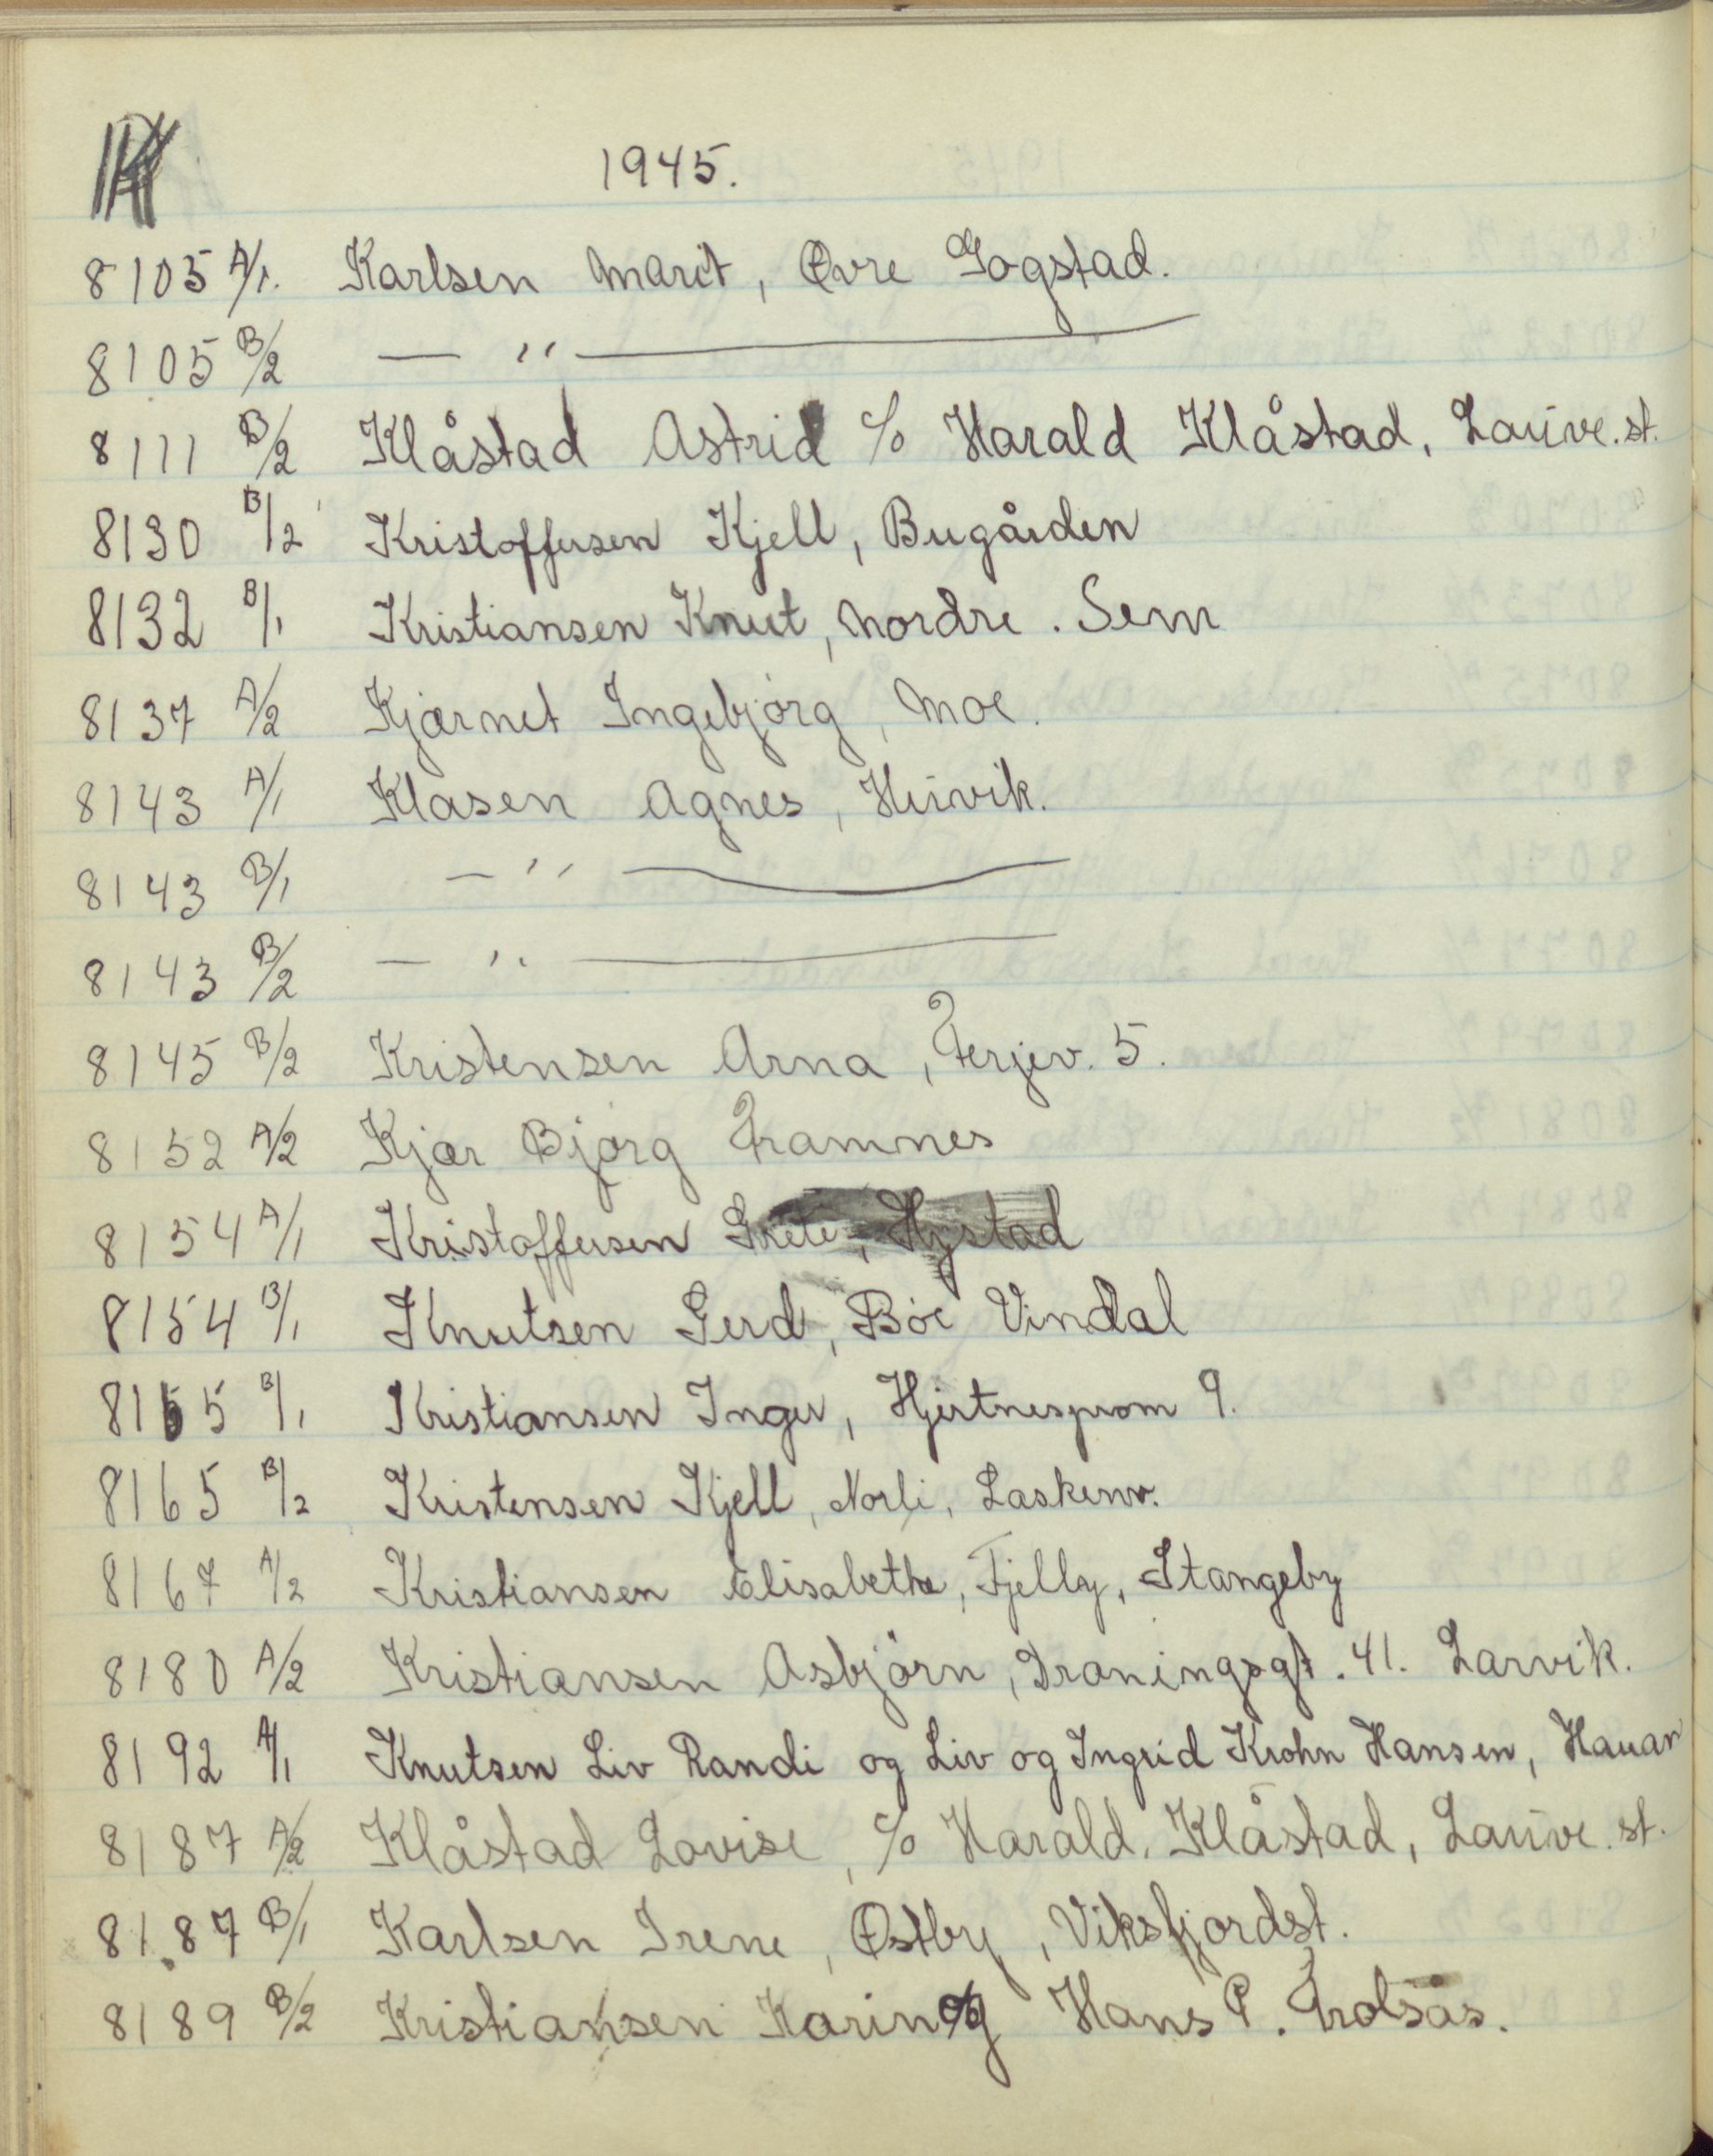 K
1945.
8105 A/1. Karlsen Marit, Øvre Gogstad.
8105 B/2 — " —
8111 B/2 Klåstad Astrid c/o Harald Klåstad, Lauve. st.
8130 B/2 Kristoffersen Kjell, Bugården
8132 B/1 Kristiansen Knut, Nordre. Sem
8137 A/2 Kjærnet Ingebjørg, Moe.
8143 A/1 Klasen Agnes, Husvik.
8143 B/1 — " —
8143 B/2 — " —
8145 B/2 Kristensen Arna, Ferjev. 5.
8152 A/2 Kjær Bjørg Framnes
8154 A/1 Kristoffersen Grete, Hystad
8154 B/1 Knutsen Gerd, Bøe Vindal
8155 B/1 Kristiansen Inger, Hjertnesprom 9.
8165 B/2 Kristensen Kjell, Norli, Laskenv.
8167 A/2 Kristiansen Elisabeth, Fjelly, Stangeby
8180 A/2 Kristiansen Asbjørn, Droningsgt. 41. Larvik.
8192 A/1 Knutsen Liv Randi og Liv og Ingrid Krohn Hansen, Hauan
8187 A/2 Klåstad Lovise, c/o Harald. Klåstad, Lauve. st.
8187 B/1 Karlsen Irene, Østby, Viksfjordst.
8189 B/2 Kristiansen Karin og Hans P.